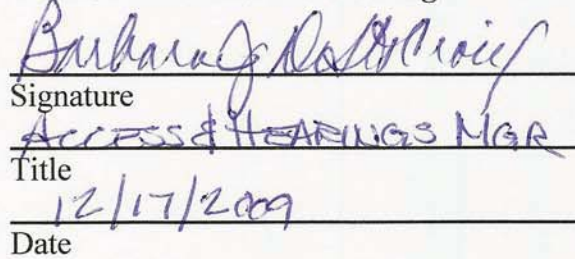 Barbara J
Signature
ACCESS & HEARINGS MGR
Title
12/17/2009
Date